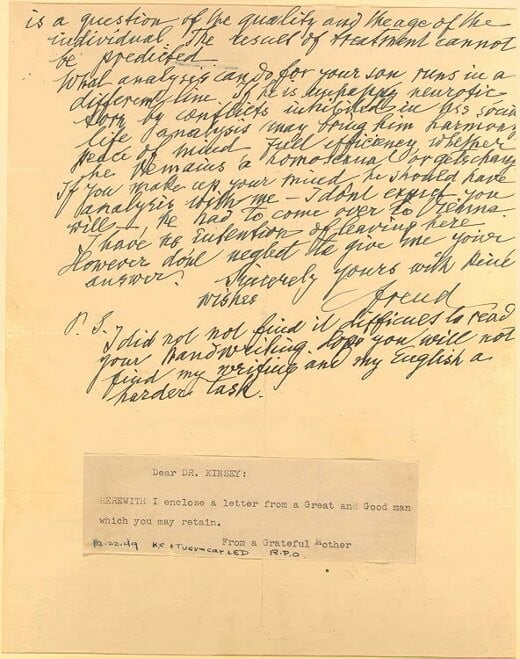 is a question of the quality and the age of the
individual. The result of treatment cannot
be predicted.
What analysis can do for your son runs in a
different line. If he is unhappy neurotic
torn by conflicts inhibited in his social
life analysis may bring him harmony
peace of mind full efficiency whether
he remains a homosexual or gets chang
If you make up your mind he should have
analysis with me — I dont expect you
will —, he had to come over to Vienna.
I have no intention of leaving here.
However dont neglect to give me your
answer.
Sincerely yours with kind
wishes
Freud
P. S.
I did not not find it difficult to read
your handwriting. Hope you will not
find my writing and my English a
harder task.
Dear DR. KINSEY:
HEREWITH I enclose a letter from a Great and Good man
which you may retain.
From a Grateful Mother
12.22.49 R.P.O.